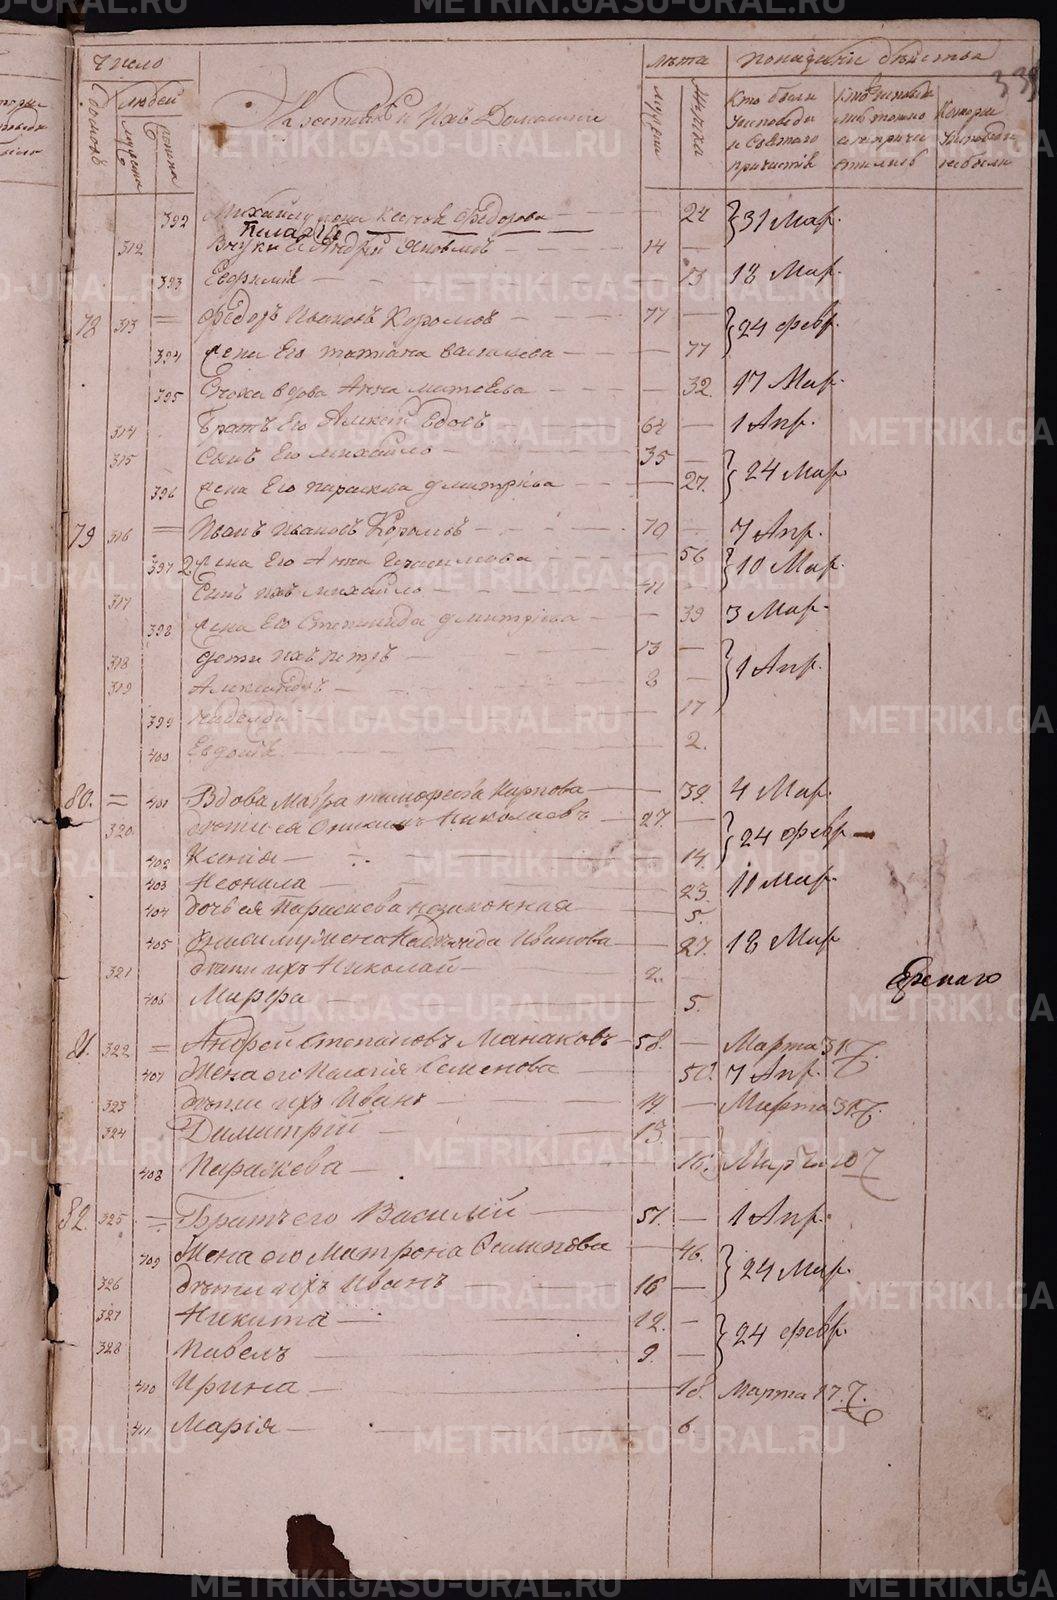 Число
Лѣта
Показаніи бытства
домовъ
людей
мужеска
женска
Крестьяне и ихъ Домашніе
мужеска
женска
Кто были исповеди и святаго причастiя
Кто исповедались токмо а не причастились
Которы исповеди не были
392 Михайлу жена Федорова — 24 } 31 Мар.
Пелагія
312 Внуки Ея Андрей Яковлевъ 14 —
393 Евфимія — 13 18 Мар.
78 313 = Федоръ Ивановъ Королювъ 77 — } 24 февр.
394 жена Его татiана васильева — 77
395 вдова Анна матвѣева — 32. 17 Мар.
314 Братъ Его Алексей вдовъ 64 — 1 Апр.
315 Сынъ Его михайло — 35 — } 24 Мар
396 жена Его параскева дмитрiева — 27.
79 316 = Иванъ Ивановъ Королювъ 70 — 7 Апр.
397 2. жена Его Анна — 56 } 10 Мар.
317 Сынъ ихъ михайло — 41 —
398 жена Его Степанида дмитрiева — 39 3 Мар.
318 дети ихъ петръ — 13 — } 1 Апр.
319 Александръ — 8 —
399 надежда — 17
400 Евдокiя — 2.
80. = 401 Вдова Мавра тимофеева Карпова — 39. 4 Мар.
320 дѣти ея Онисимъ Николаевъ — 27. — } 24 февр
402 Ксенiя — 14.
403 Неонила — 23. 10 Мар.
404 дочь ея Параскева незаконная — 5.
405 Онисиму жена Надежда Иванова — 27. 18 Мар
321 дѣти ихъ Николай — 2. —
406 Марфа — 5.
81. 322 = Андрей Степановъ Манаковъ 58. — Марта 31
407 Жена его Пелагiя Семенова — 50. 7 Апр.
323 дѣти ихъ Иванъ — 19 — Марта 31
324 Димитрiй — 13.
408 Параскева — 16. Марта 10
82. 325 = Братъ его Василiй — 51. — 1 Апр.
409 Жена его Матрона Филипова — 46. } 24 Мар.
326 дѣти ихъ Иванъ — 16 —
327 Никита — 12. — } 24 февр.
328 Павелъ — 9. —
410 Ирина — 18. Марта 17.
411 Марiя — 6.